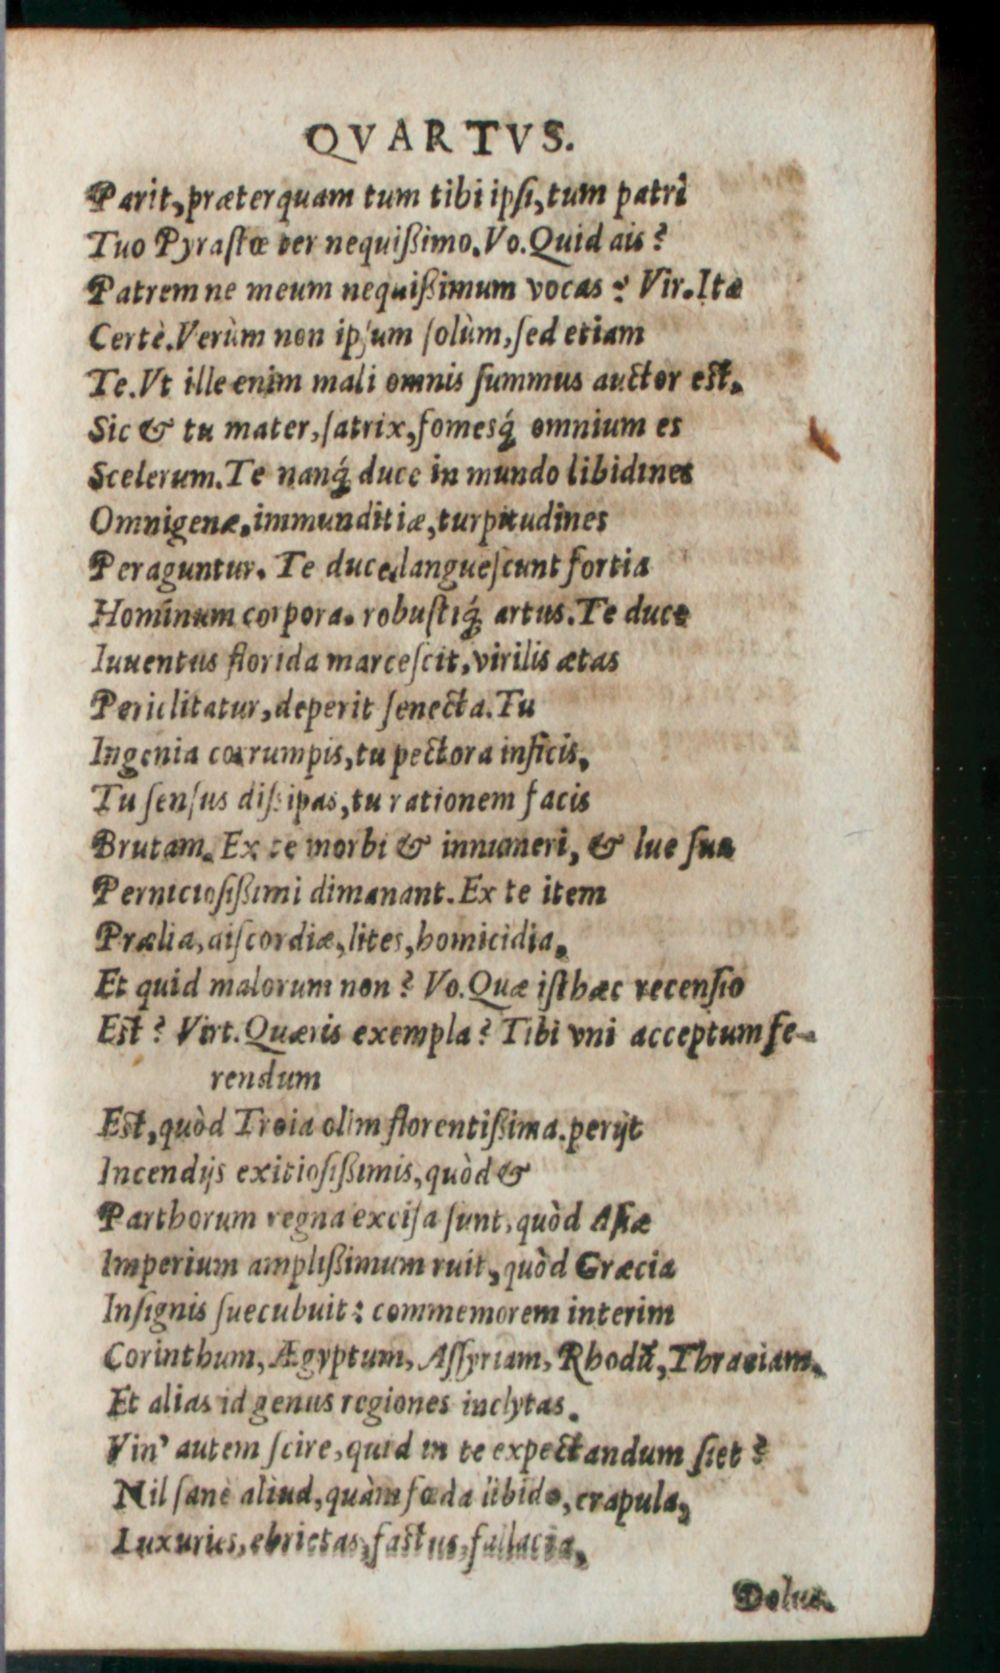 QVARTVS.
Parit, præterquam tum tibi ipſi, tum patri
Tuo Pyraſtæ ter nequißimo. Vo. Quid ais?
Patrem ne meum nequißimum vocas? Vir. Ita
Certè. Verùm non ipſum ſolùm, ſed etiam
Te. Vt ille enim mali omnis ſummus auctor eſt,
Sic & tu mater, ſatrix, fomesq́; omnium es
Scelerum. Te nanq́; duce in mundo libidines
Omnigenæ, immunditiæ, turpitudines
Peraguntur. Te duce, langueſcunt fortia
Hominum corpora, robuſtiq́; artus. Te duce
Iuuentus florida marceſcit, virilis ætas
Periclitatur, deperit ſenecta. Tu
Ingenia corrumpis, tu pectora inficis,
Tu ſenſus dißipas, tu rationem facis
Brutam. Ex te morbi & innumeri, & lue ſua
Pernicioſißimi dimanant. Ex te item
Prælia, diſcordiæ, lites, homicidia,
Et quid malorum non? Vo. Quæ iſthæc recenſio
Eſt? Virt. Quæris exempla? Tibi vni acceptum fe-
rendum
Eſt, quòd Troia olim florentißima, perijt
Incendijs exitioſißimis, quòd &
Parthorum regna exciſa ſunt, quòd Aſiæ
Imperium amplißimum ruit, quòd Græcia
Inſignis ſuccubuit: commemorem interim
Corinthum, Ægyptum, Aſſyriam, Rhodū, Thraciam,
Et alias id genus regiones inclytas.
Vin' autem ſcire, quid in te expectandum ſiet?
Nil ſanè aliud, quàm fœda libido, crapula,
Luxuries, ebrietas, faſtus, fallacia,
Dolus.